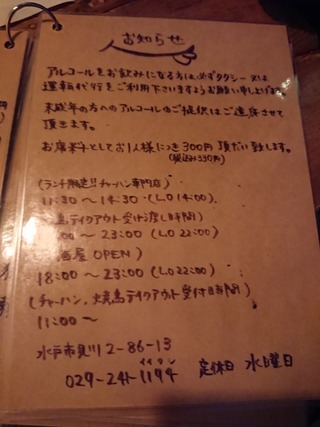 お知らせ
アルコールをお飲みになる方は必ずタクシー又は
運転代行をご利用下さいますようお願い申し上げます。
未成年の方へのアルコールのご提供はご遠慮させて
頂きます。
お席料としてお1人様につき300円頂だい致します。
(税込み330円)
(ランチ限定!! チャーハン専門店)
11:30 〜 14:30 (L.O 14:00)
鳥テイクアウト受け渡し時間)
:00 〜 23:00 (L.O 22:00)
酒屋 OPEN)
18:00 〜 23:00 (L.O 22:00)
(チャーハン、焼鳥テイクアウト受付時間)
11:00 〜
水戸市見川 2-86-13
029-241-1194 定休日 水曜日